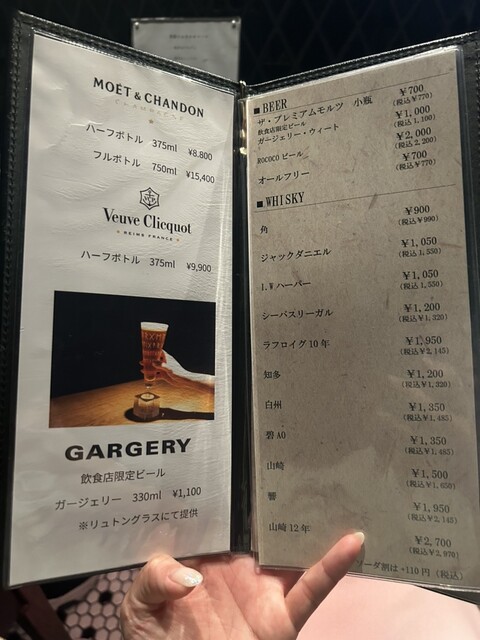 MOËT & CHANDON
CHAMPAGNE
ハーフボトル 375ml ¥8,800
フルボトル 750ml ¥15,400
Veuve Clicquot
REIMS FRANCE
ハーフボトル 375ml ¥9,900
GARGERY
飲食店限定ビール
ガージェリー 330ml ¥1,100
※リュトングラスにて提供
■BEER
ザ・プレミアムモルツ 小瓶 ¥700
(税込¥770)
飲食店限定ビール
ガージェリー・ウィート ¥1,000
(税込 1,100)
ROCOCO ビール ¥2,000
(税込 2,200)
オールフリー ¥700
(税込¥770)
■WHISKY
角 ¥900
(税込¥990)
ジャックダニエル ¥1,050
I.W ハーパー ¥1,050
シーバスリーガル ¥1,200
(税込¥1,320)
ラフロイグ 10 年 ¥1,950
(税込¥2,145)
知多 ¥1,200
(税込¥1,320)
白州 ¥1,350
(税込¥1,485)
碧 AO ¥1,350
(税込¥1,485)
山崎 ¥1,500
(税込¥1,650)
響 ¥1,950
(税込¥2,145)
山崎 12 年 ¥2,700
(税込¥2,970)
ソーダ割は +110 円 (税込)